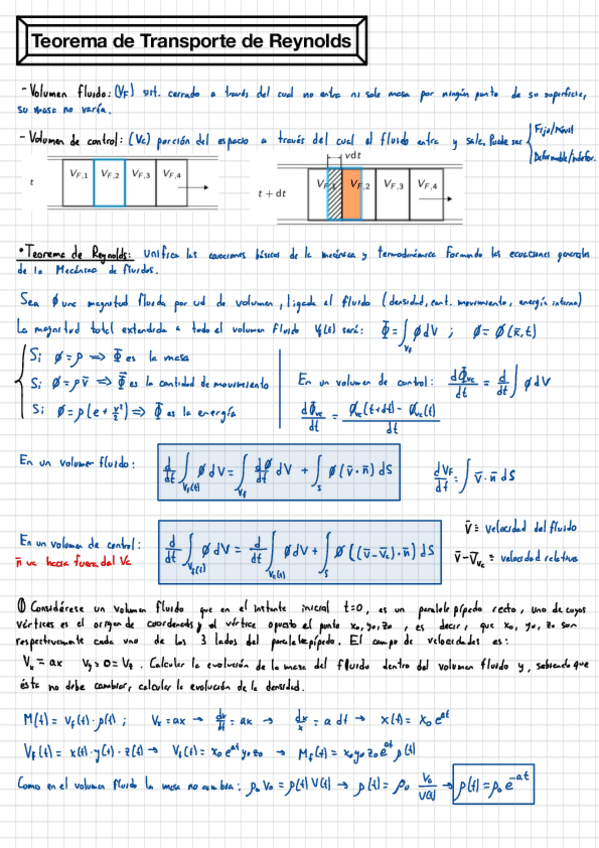 Teorema de Transporte de Reynolds
- Volumen fluido: (V_F) sist. cerrado a través del cual no entra ni sale masa por ningún punto de su superficie,
su masa no varía.
- Volumen de control: (Vc) porción del espacio a través del cual el fluido entra y sale. Puede ser { Fijo/Móvil
Deformable/Indefor.
t V_F,1 V_F,2 V_F,3 V_F,4
vdt
t + dt V_F,1 V_F,2 V_F,3 V_F,4
• Teorema de Reynolds: unifica las ecuaciones básicas de la mecánica y termodinámica formando las ecuaciones generales
de la Mecánica de fluidos.
Sea ϕ una magnitud fluida por ud de volumen, ligada al fluido (densidad, cant. movimiento, energía interna)
La magnitud total extendida a todo el volumen fluido V_f(t) será: Φ = ∫_Vf ϕ dV ; ϕ = ϕ(x̄,t)
Si ϕ = ρ ⇒ Φ es la masa
Si ϕ = ρv̄ ⇒ Φ̄ es la cantidad de movimiento
Si ϕ = ρ(e + v²/2) ⇒ Φ es la energía
En un volumen de control: dΦ_vc/dt = d/dt ∫ ϕ dV
dΦ_vc/dt = (Φ_vc(t+dt) - Φ_vc(t))/dt
En un volumen fluido: d/dt ∫_Vf(t) ϕ dV = ∫_Vf dϕ/dt dV + ∫_S ϕ(v̄·n̄) dS
dV_F/dt = ∫ v̄·n̄ dS
En un volumen de control: d/dt ∫_Vf(t) ϕ dV = d/dt ∫_Vc(t) ϕ dV + ∫_S ϕ((v̄-v̄c)·n̄) dS
n̄ va hacia fuera del Vc
v̄ ≡ velocidad del fluido
v̄ - v̄_Vc ≡ velocidad relativa
① Considérese un volumen fluido que en el instante inicial t=0, es un paralelepípedo recto, uno de cuyos
vértices es el origen de coordenadas y el vértice opuesto el punto x₀, y₀, z₀, es decir, que x₀, y₀, z₀ son
respectivamente cada uno de los 3 lados del paralelepípedo. El campo de velocidades es:
Vₓ = ax V_y = 0 = V_z. Calcular la evolución de la masa del fluido dentro del volumen fluido y, sabiendo que
ésta no debe cambiar, calcular la evolución de la densidad.
M(t) = V_f(t)·ρ(t) ; Vₓ = ax → dx/dt = ax → dx/x = a dt → x(t) = x₀e^at
V_f(t) = x(t)·y(t)·z(t) → V_f(t) = x₀e^at y₀z₀ → M_f(t) = x₀y₀z₀e^at ρ(t)
Como en el volumen fluido la masa no cambia: ρ₀V₀ = ρ(t)V(t) → ρ(t) = ρ₀ V₀/V(t) → ρ(t) = ρ₀e^-at